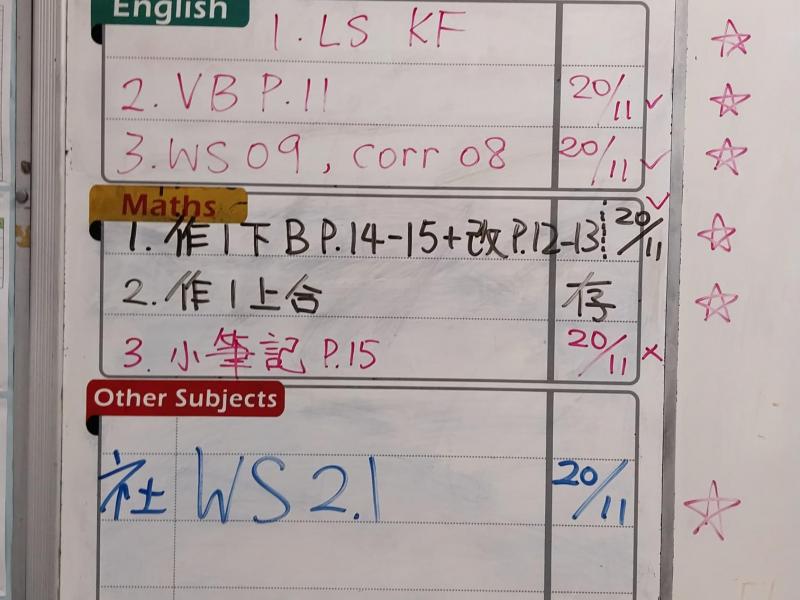 English
1. LS KF
2. VB P.11 20/11 ✓
3. WS 09, corr 08 20/11 ✓
Maths
1. 作1下B P.14-15+改P.12-13 20/11 ✓
2. 作1上合 存
3. 小筆記 P.15 20/11 ×
Other Subjects
社 WS 2.1 20/11